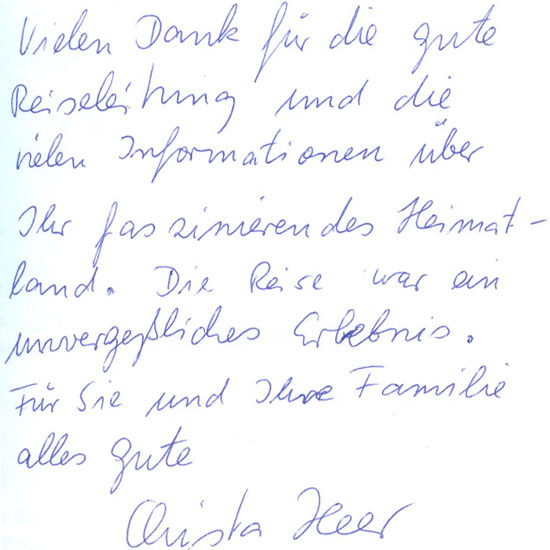 Vielen Dank für die gute
Reiseleitung und die
vielen Informationen über
Ihr faszinierendes Heimat-
land. Die Reise war ein
unvergeßliches Erlebnis.
Für Sie und Ihre Familie
alles gute
Christa Heer